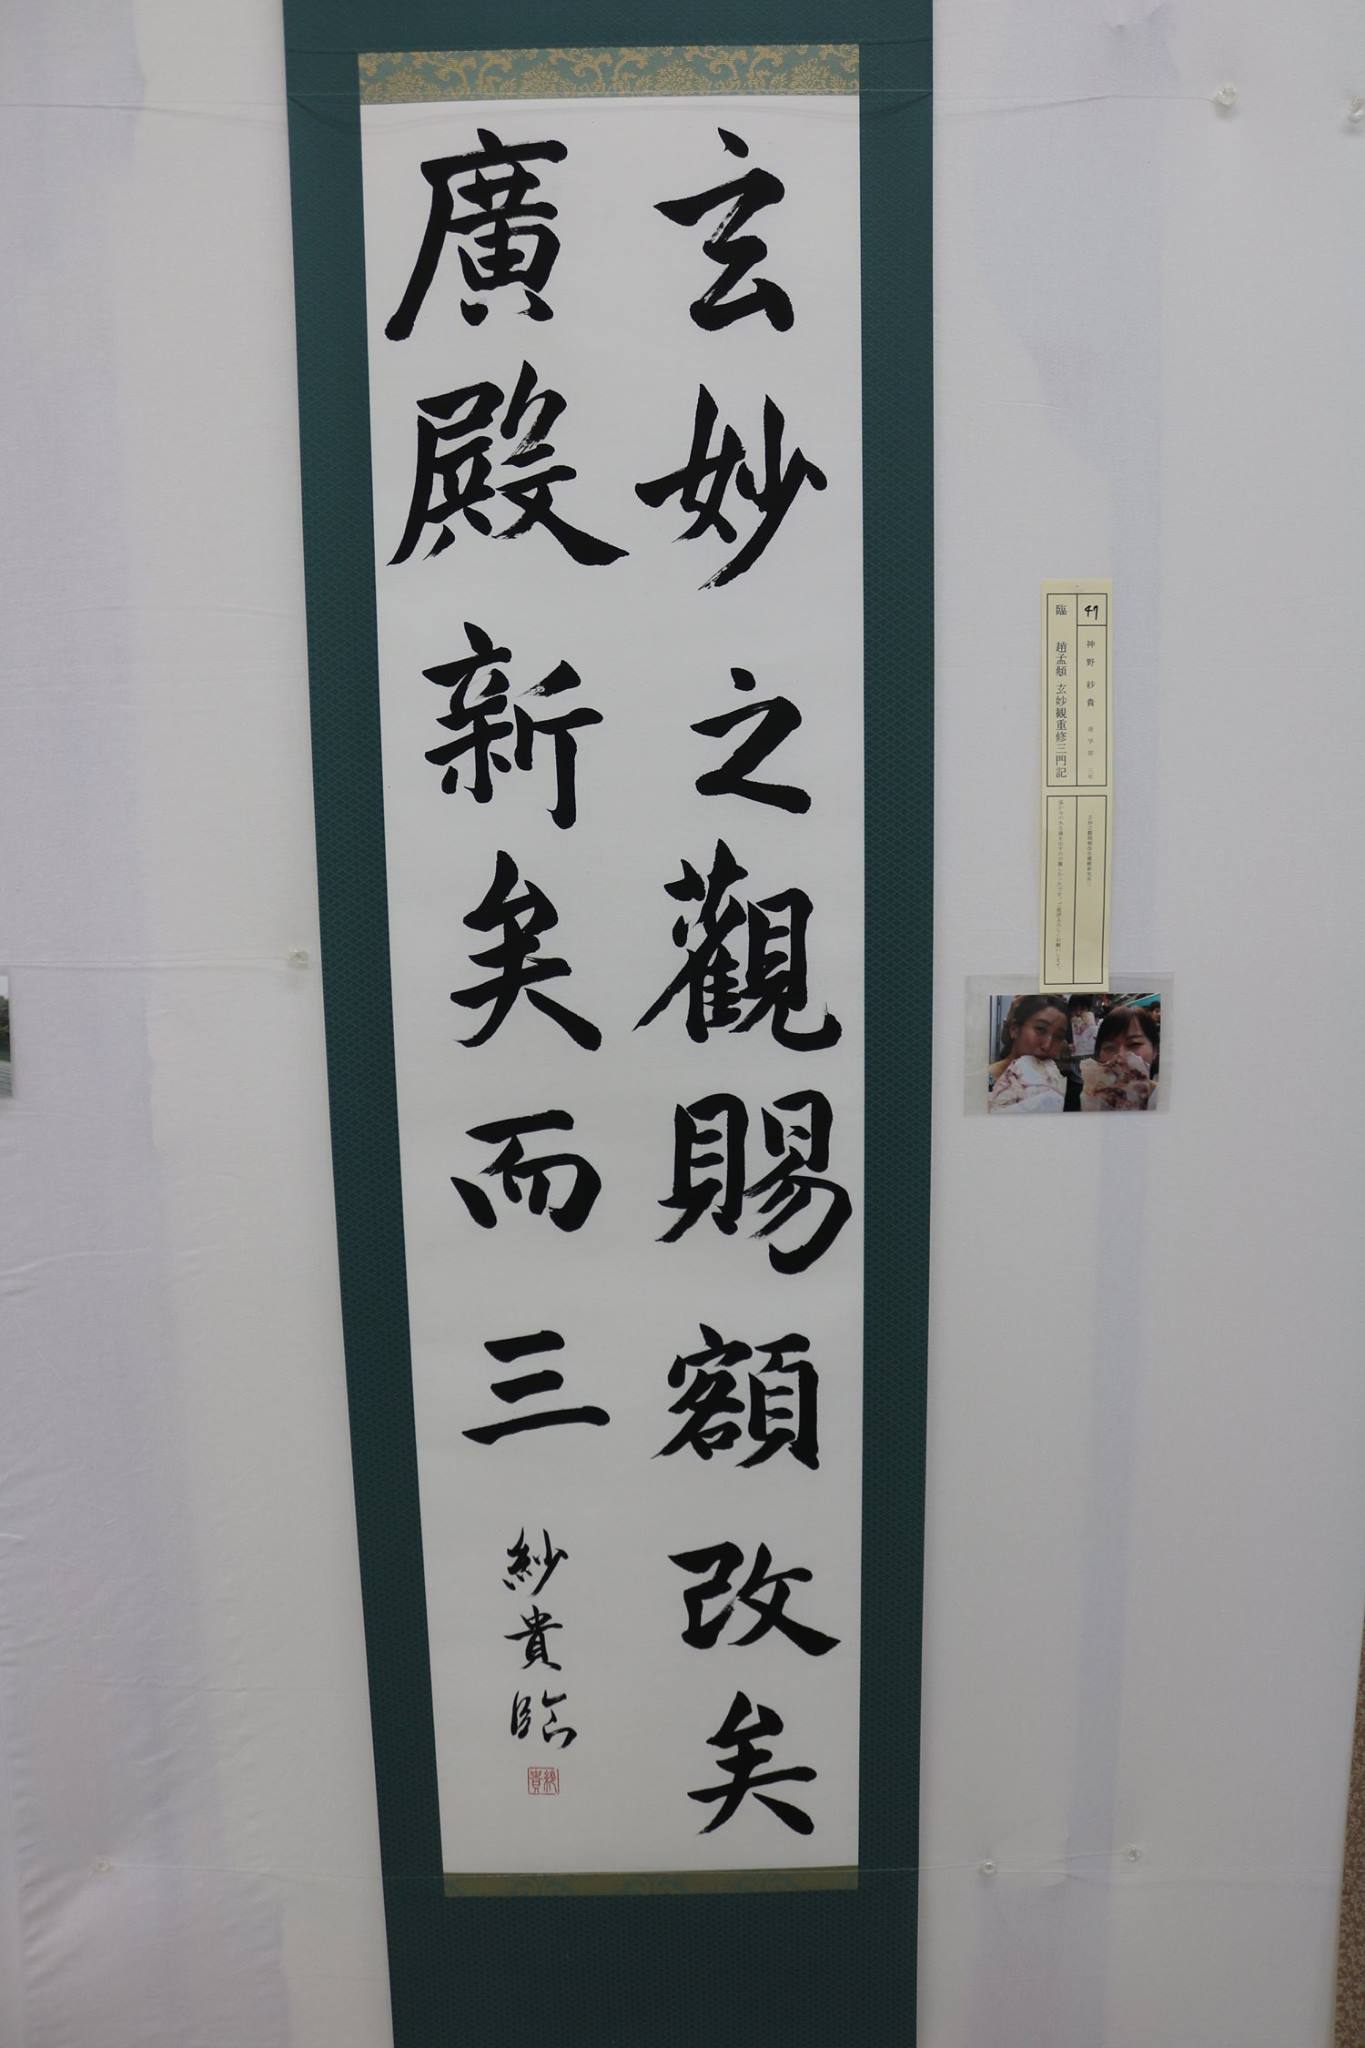 玄妙之觀賜額改矣
廣殿新矣而三
紗貴臨
47
神野紗貴
臨 趙孟頫 玄妙観重修三門記